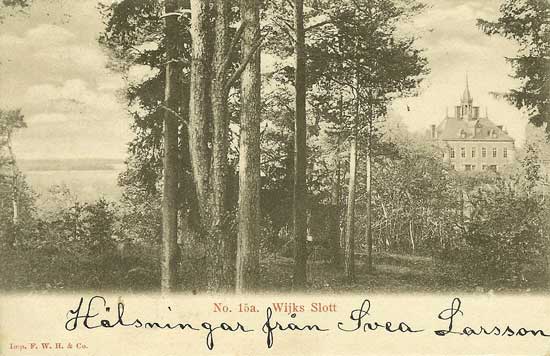 No. 15a. Wijks Slott
Hälsningar från Svea Larsson
Imp. F. W. H. & Co.